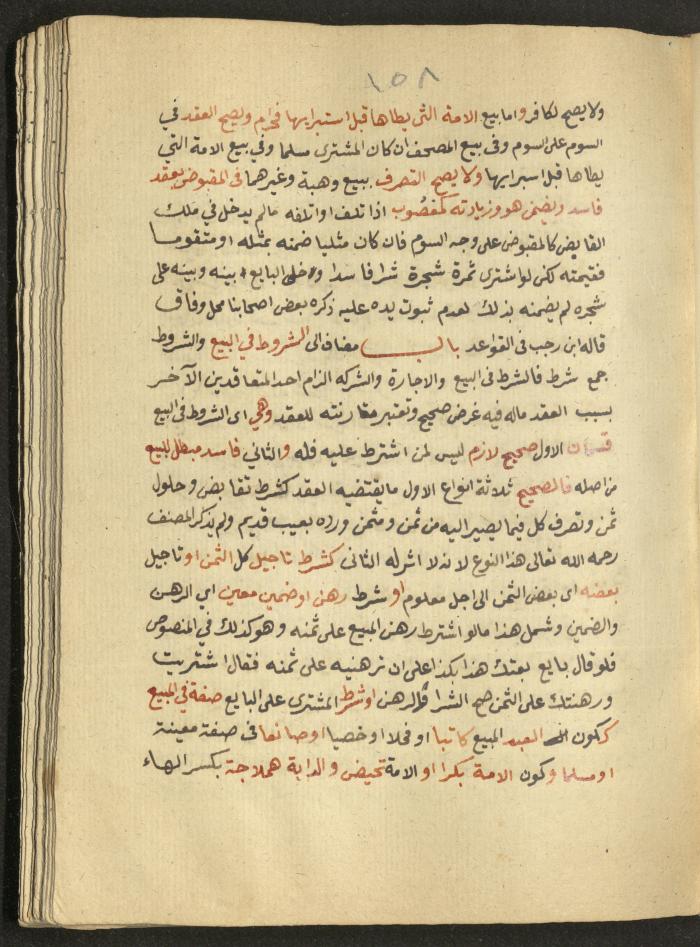 ١٥٨
ولا يصح لكافر واما بيع الامة التى يطاها قبل استبرايها فحرام ويصح العقد في
السوم على السوم وفى بيع المصحف ان كان المشترى مسلما وفي بيع الامة التي
يطاها قبل اسبرايها ولا يصح التصرف ببيع وهبة وغيرهما فى المقبوض بعقد
فاسد ويضمن هو وزيادته كمغصوب اذا تلف او اتلفه مالم يدخل في ملك
القابض كالمقبوض على وجه السوم فان كان مثليا ضمنه بمثله او متقوما
فقيمته لكن لو اشترى ثمرة شجرة شرا فاسدا وخلى البايع بينه وبينه على
شجره لم يضمنه بذلك لعدم ثبوت يده عليه ذكره بعض اصحابنا محل وفاق
قاله ابن رجب فى القواعد باب مضاف الى الشروط في البيع والشروط
جمع شرط فالشرط فى البيع والاجارة والشركه الزام احد المتعاقدين الآخر
بسبب العقد ماله فيه غرض صحيح وتعتبر مقارنته للعقد وهي اى الشروط فى البيع
قسمان الاول صحيح لازم ليس لمن اشترط عليه فله والثاني فاسد مبطل للبيع
من اصله فالصحيح ثلاثة انواع الاول ما يقتضيه العقد كشرط تقابض وحلول
ثمن وتصرف كل فيما يصير اليه من ثمن ومثمن ورده بعيب قديم ولم يذكر المصنف
رحمه الله تعالى هذا النوع لانه لا اثر له الثانى كشرط تاجيل كل الثمن او تاجيل
بعضه اى بعض الثمن الى اجل معلوم او شرط رهن او ضمين معين اي الرهن
والضمين وشمل هذا مالو اشترط رهن المبيع على ثمنه وهو كذلك في المنصوص
فلو قال بايع بعتك هذا بكذا على ان ترهنيه على ثمنه فقال اشتريت
ورهنتك على الثمن صح الشرا والرهن او شرط المشترى على البايع صفة في المبيع
ككون العبد المبيع كاتبا او فحلا او خصيا او صانعا فى صنفة معينة
او مسلما وكون الامة بكرا او الامة تحيض والدابة هملاجة بكسر الهاء